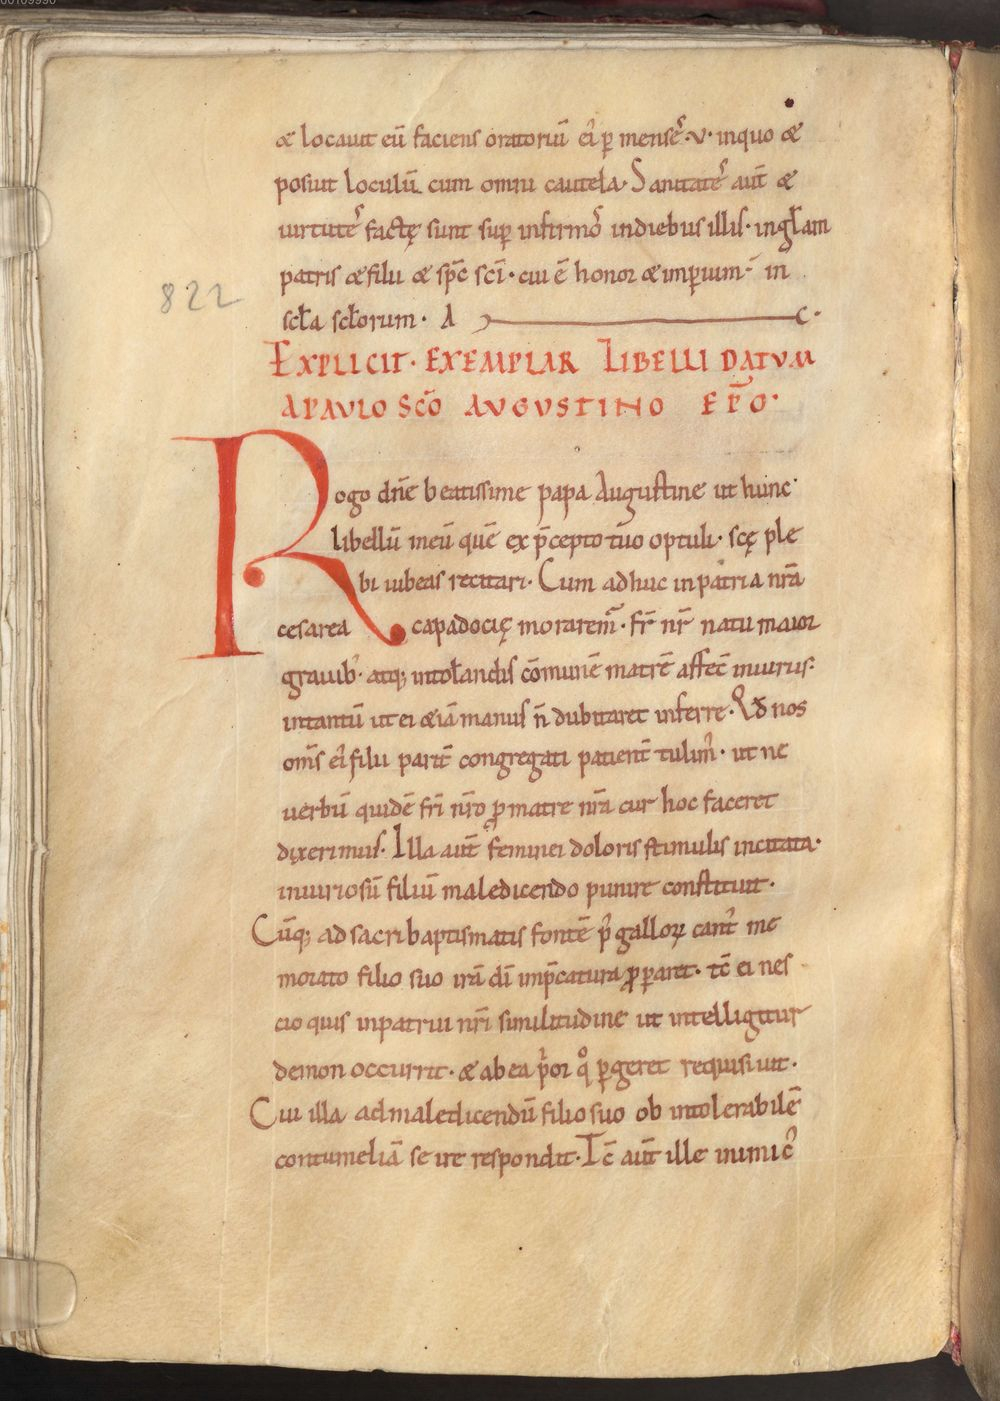 00109990
æ locauit eū faciens oratoriū ei᾽ p̱ mense᾽ ·v· inquo æ
posiuit loculū cum omni cautela· Sanitate᾽ aut̄ æ
uirtute᾽ factę sunt sup̱ infirmo᾽ indiebus illis· ingłam
patris æ filii æ sp̄c sc̄i· cui ē honor æ imp̱ium· in
scła scłorum· A c·
EXPLICIT· EXEMPLAR LIBELLI DATUM
APAULO SC̄O AUGUSTINO EP̄O·
822
Rogo dn̄e beatissime papa Augustine ut hunc
libellū meū quē ex p̄cepto tuo optuli· scę ple
bi iubeas recitari· Cum adhuc inpatria nr̄a
cesarea capadocię morarem᾽· fr̄ nr̄ natu maior
grauib᾽· atq; intołandis cōmunē matrē affec̄ iniuriis·
intantū ut ei æiā manus n̄ dubitaret inferre· Qd̄ nos
om̄s ei᾽ filii parit̄ congregati patient̄ tulim᾽· ut ne
uerbū quidē fr̄i nr̄o ꝓ matre nr̄a cur hoc faceret
dixerimus· Illa aut̄ feminei doloris stimulis incitata·
iniuriosū filiū maledicendo punire constituit·
Cūq; ad sacri baptismatis fontē p᾽ galloꝝ cant᾽ me
morato filio suo irā dī imp̄catura ꝓp̱aret· tc̄ ei nes
cio quis inpatrui nr̄i similitudine ut intelligitur
demon occurrit· æ ab ea p᾽or q᾽ p̱geret requisiuit·
Cui illa admaledicendū filio suo ob intolerabilē
contumeliā se ire respondit· Tc̄ aut̄ ille inimic᾽